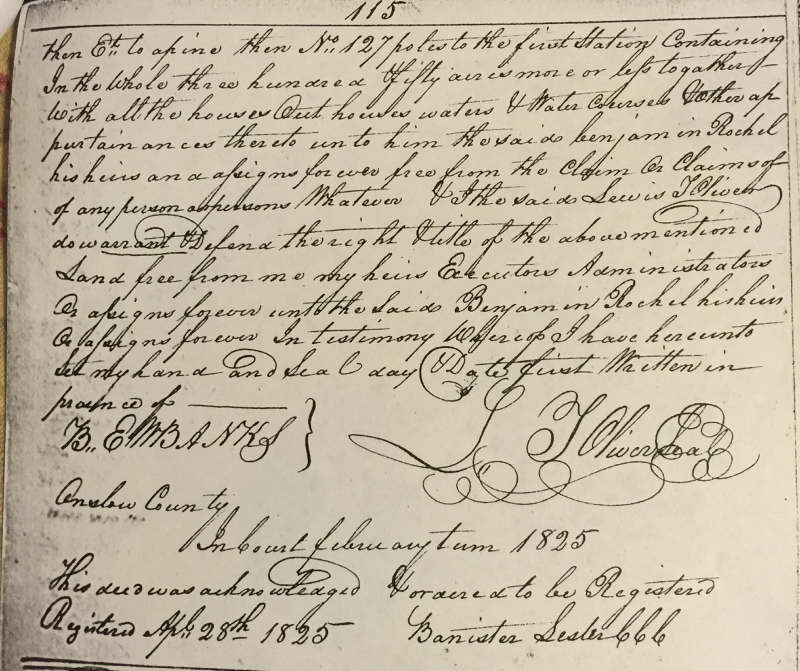 115
then Et. to a pine then No. 127 poles to the first Station Containing
In the Whole three hundred & fifty acres more or less together
With all the houses Out houses waters & Water Courses & Other ap
purtainances thereto unto him the said benjamin Rochel
his heirs and asigns forever free from the Claim Or Claims of
of any person or persons Whatever & I the said Lewis T Oliver
do warrant & Defend the right & title of the above mentioned
Land free from me my heirs Executors Administrators
Or asigns forever unto the Said Benjamin Rochel his heirs
Or asigns forever In testimony Whereof I have hereunto
Set my hand and Seal day & Date first Written in
presnce of
B. EWBANKS } L T Oliver Seal
Onslow County
In Court february term 1825
This deed was acknowledged & ordered to be Registered
Registered Apl. 28th 1825 Banister Lester CCC